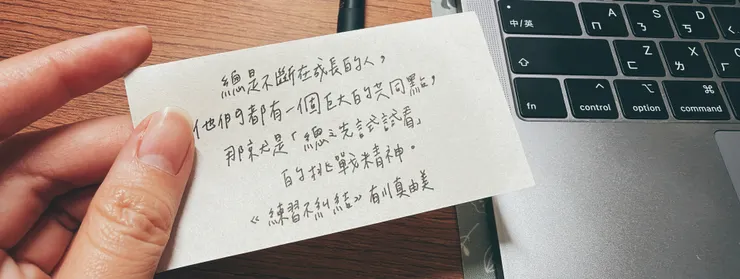 總是不斷在成長的人，
他們都有一個巨大的共同點，
那就是「總之先試試看」
的挑戰精神。
《練習不糾結》有川真由美
中/英
ㄅ
A
S
shift
ㄈ
Z
ㄌ
X
ㄏ
C
fn
control
option
command